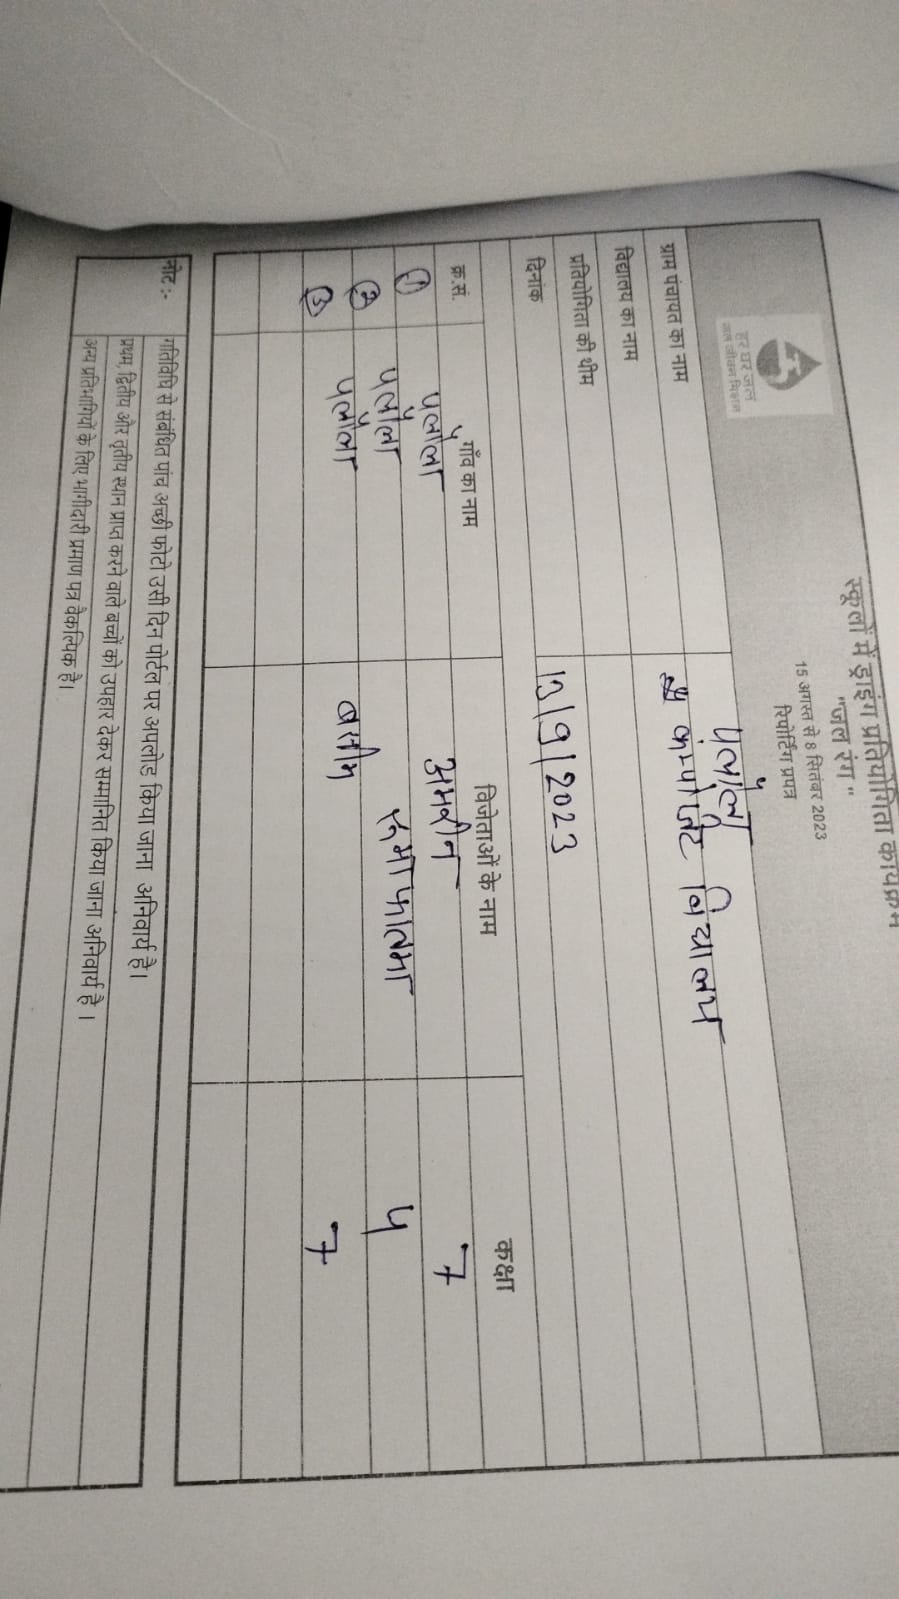 स्कूलों में ड्राइंग प्रतियोगिता कार्यक्रम
"जल रंग"
15 अगस्त से 8 सितंबर 2023
रिपोर्टिंग प्रपत्र
हर घर जल
जल जीवन मिशन
ग्राम पंचायत का नाम
विद्यालय का नाम कम्पोजिट विद्यालय
प्रतियोगिता की थीम
दिनांक 13/9/2023
क्र.सं. गाँव का नाम विजेताओं के नाम कक्षा
① 7
② 4
③ 7
नोट :- गतिविधि से संबंधित पांच अच्छी फोटो उसी दिन पोर्टल पर अपलोड किया जाना अनिवार्य है।
प्रथम, द्वितीय और तृतीय स्थान प्राप्त करने वाले बच्चों को उपहार देकर सम्मानित किया जाना अनिवार्य है।
अन्य प्रतिभागियों के लिए भागीदारी प्रमाण पत्र वैकल्पिक है।